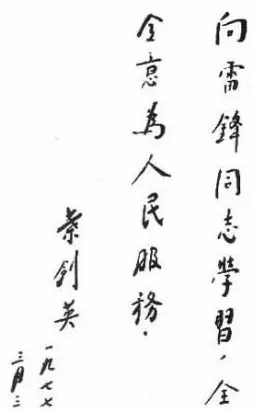 向雷鋒同志學習，全
全意為人民服務.
葉劍英
一九七七
三月三